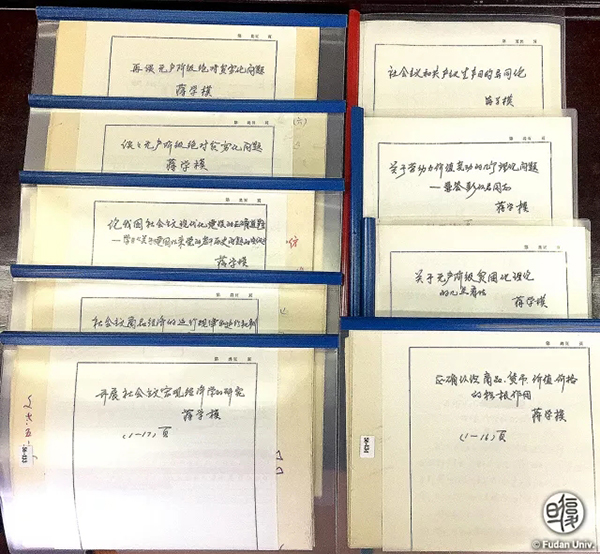 再谈无产阶级绝对贫困化问题
蒋学模
谈谈无产阶级绝对贫困化问题
(六)
蒋学模
论我国社会主义现代化建设的正确道路
蒋学模
社会主义商品经济的运行规律和运行机制
开展社会主义宏观经济学的研究
蒋学模
(1-17)页
社会主义和共产主义生产目的异同论
蒋学模
关于劳动力价值变动的几个理论问题
—兼答彭似名同志
蒋学模
关于无产阶级贫困化理论
的几点看法
蒋学模
正确认识商品、货币、价值、价格
的积极作用
蒋学模
(1-16)页
© Fudan Univ.